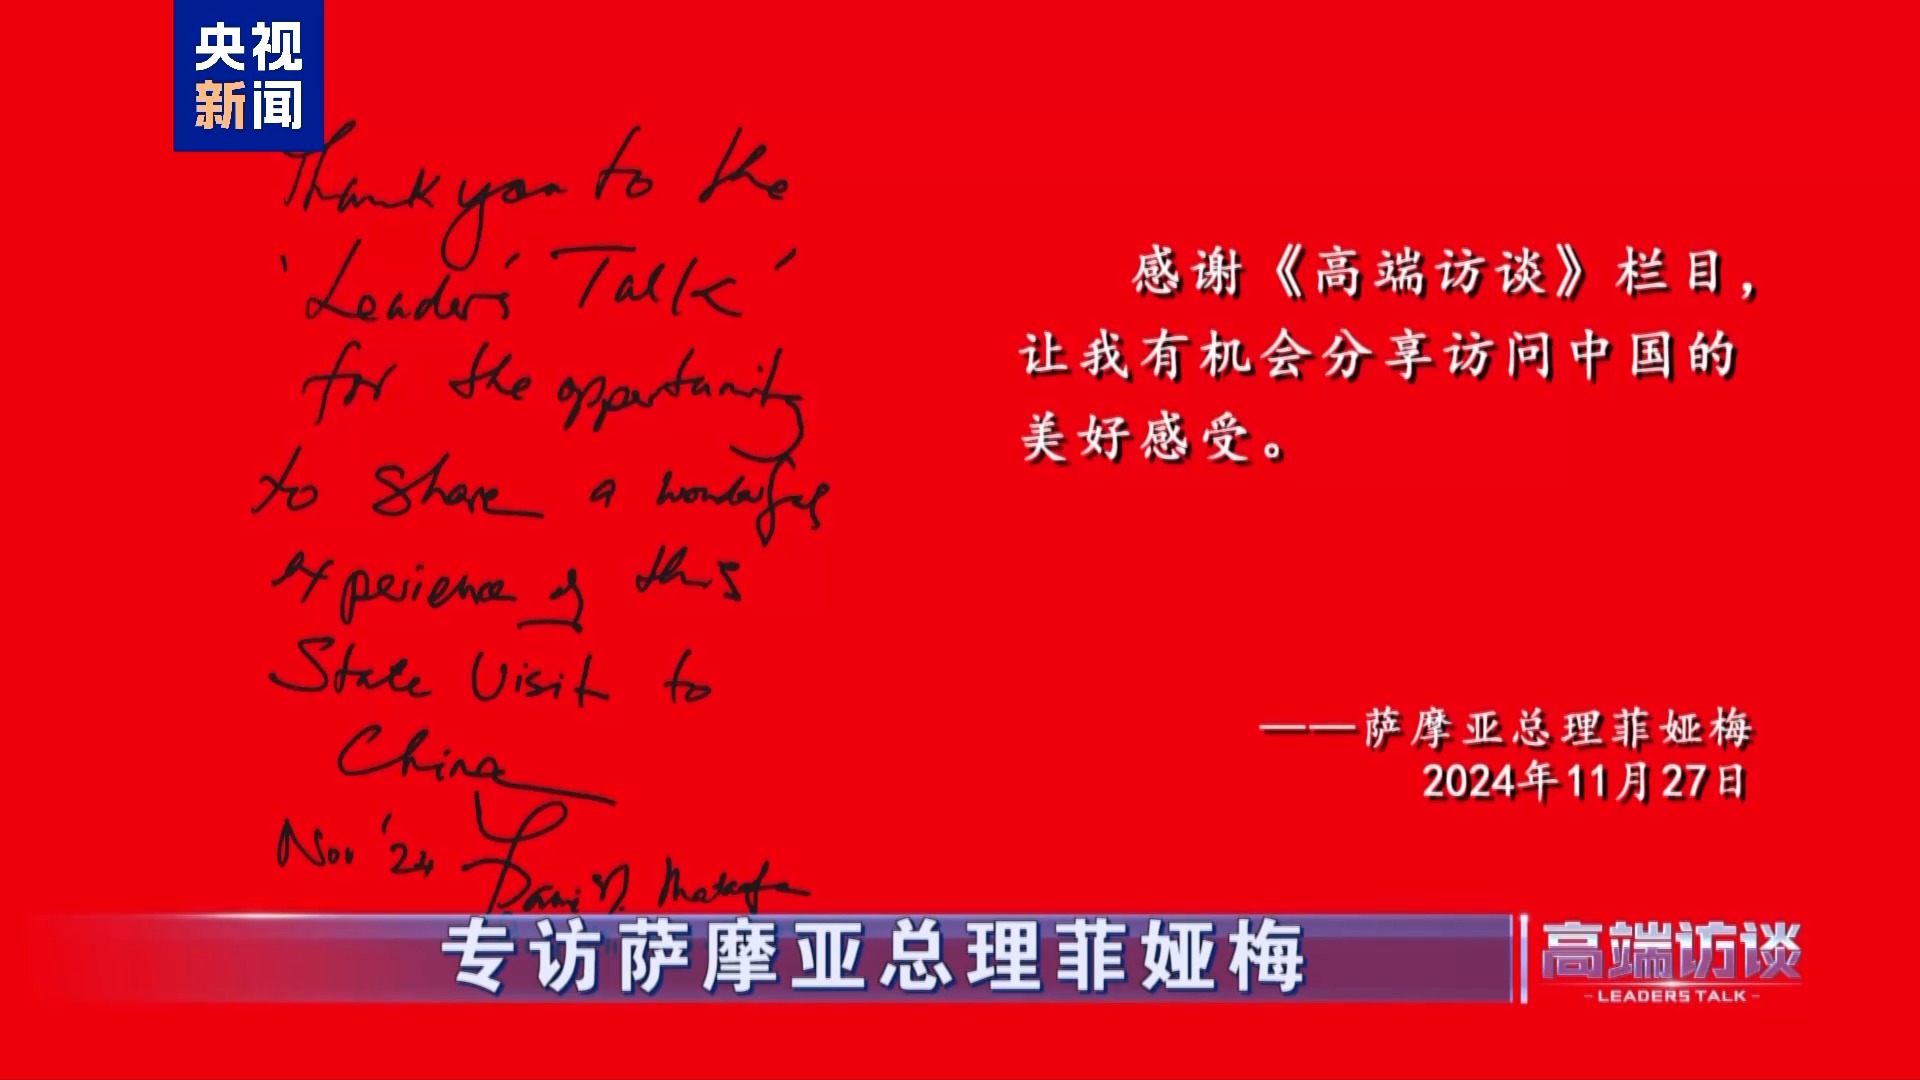 央视
新闻
Thank you to the
'Leaders' Talk'
for the opportunity
to share a wonderful
experience of this
State Visit to
China
Nov '24
感谢《高端访谈》栏目，
让我有机会分享访问中国的
美好感受。
——萨摩亚总理菲娅梅
2024年11月27日
专访萨摩亚总理菲娅梅
高端访谈
- LEADERS TALK -